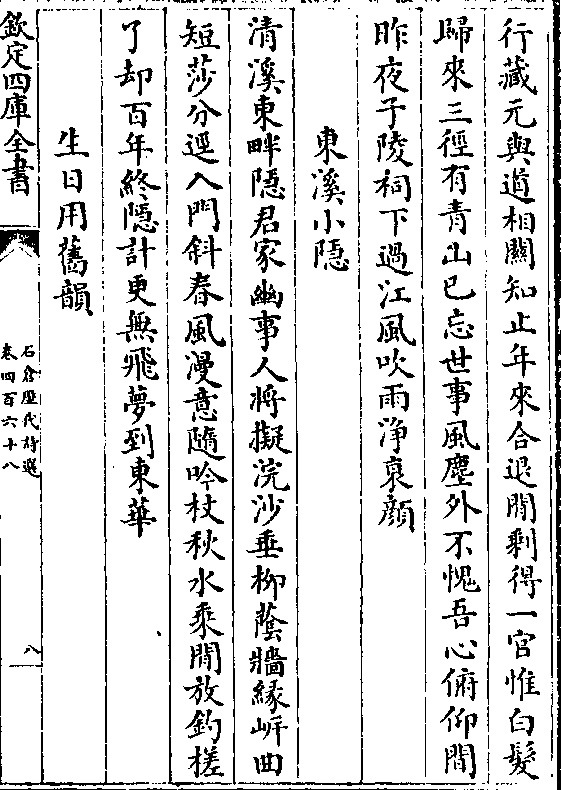 行藏元與道相關知止年來合退閒剩得一官惟白髮
歸來三徑有青山已忘世事風塵外不愧吾心俯仰間
昨夜子陵祠下過江風吹雨淨衰顔
東溪小隱
清溪東畔隠君家幽事人將擬浣沙垂柳蔭牆緣岍曲
短莎分逕入門斜春風漫意隨吟杖秋水乘閒放釣槎
了却百年終隠計更無飛夢到東華
生日用舊韻
欽定四庫全書
石倉歴代詩選
卷四百六十八
八